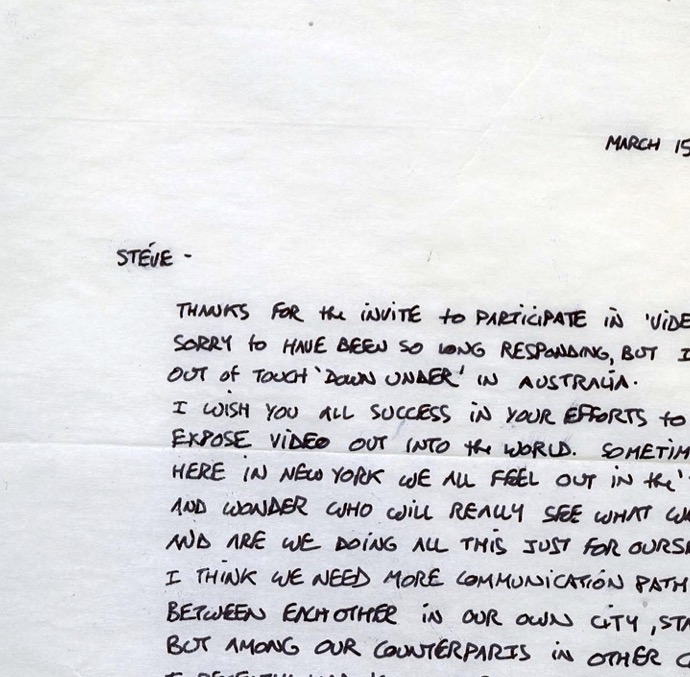 MARCH 15
STEVE -
THANKS FOR the INVITE to PARTICIPATE IN 'VIDE
SORRY to HAVE BEEN SO LONG RESPONDING, BUT I
OUT of TOUCH 'DOWN UNDER' IN AUSTRALIA.
I WISH YOU ALL SUCCESS IN YOUR EFFORTS to
EXPOSE VIDEO OUT INTO the WORLD. SOMETIM
HERE IN NEW YORK WE ALL FEEL OUT IN the '
AND WONDER WHO WILL REALLY SEE WHAT W
AND ARE WE DOING ALL THIS JUST FOR OURS
I THINK WE NEED MORE COMMUNICATION PATH
BETWEEN EACHOTHER IN OUR OWN CITY, STA
BUT AMONG OUR COUNTERPARTS IN OTHER C